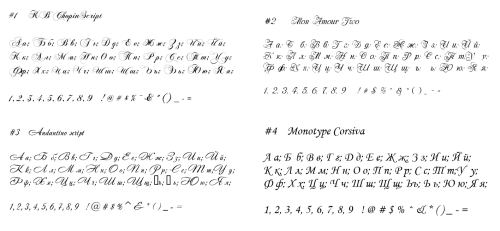 #1 K B Chopin Script
Аа; Бб; Вв; Гг; Дд; Ее; Жж; Зз; Ии; Йй;
Кк; Лл; Мм; Нн; Оо; Пп; Рр; Сс; Тт; Уу;
Фф; Хх; Цц; Чч; Шш; Щщ; Ъъ; Ьь; Юю; Яя;
1, 2, 3, 4, 5, 6, 7, 8, 9 ! @ # $ % ^ & * ( ) _ - =
#2 Mon Amour Two
Аа; Бб; Вв; Гг; Дд; Ее; Жж; Зз; Ии; Йй;
Кк; Лл; Мм; Нн; Оо; Пп; Рр; Сс; Тт; Уу;
Фф; Хх; Цц; Чч; Шш; Щщ; ъ; ь; Юю; Яя;
1, 2, 3, 4, 5, 6, 7, 8, 9 ! @ # $ % ^ & * ( ) _ - =
#3 Andantino script
Аа; Бб; Вв; Гг; Дд; Ее; Жж; Зз; Ии; Йй;
Кк; Лл; Мм; Нн; Оо; Пп; Рр; Сс; Тт; Уу;
Фф; Хх; Цц; Чч; Шш; Щщ; ъ; ь; Юю; Яя;
1, 2, 3, 4, 5, 6, 7, 8, 9 ! @ # $ % ^ & * ( ) _ - =
#4 Monotype Corsiva
Аа; Бб; Вв; Гг; Дд; Ее; Жж; Зз; Ии; Йй;
Кк; Лл; Мм; Нн; Оо; Пп; Рр; Сс; Тт; Уу;
Фф; Хх; Цц; Чч; Шш; Щщ; Ъъ; Ьь; Юю; Яя;
1, 2, 3, 4, 5, 6, 7, 8, 9 ! @ # $ % ^ & * ( ) _ - =